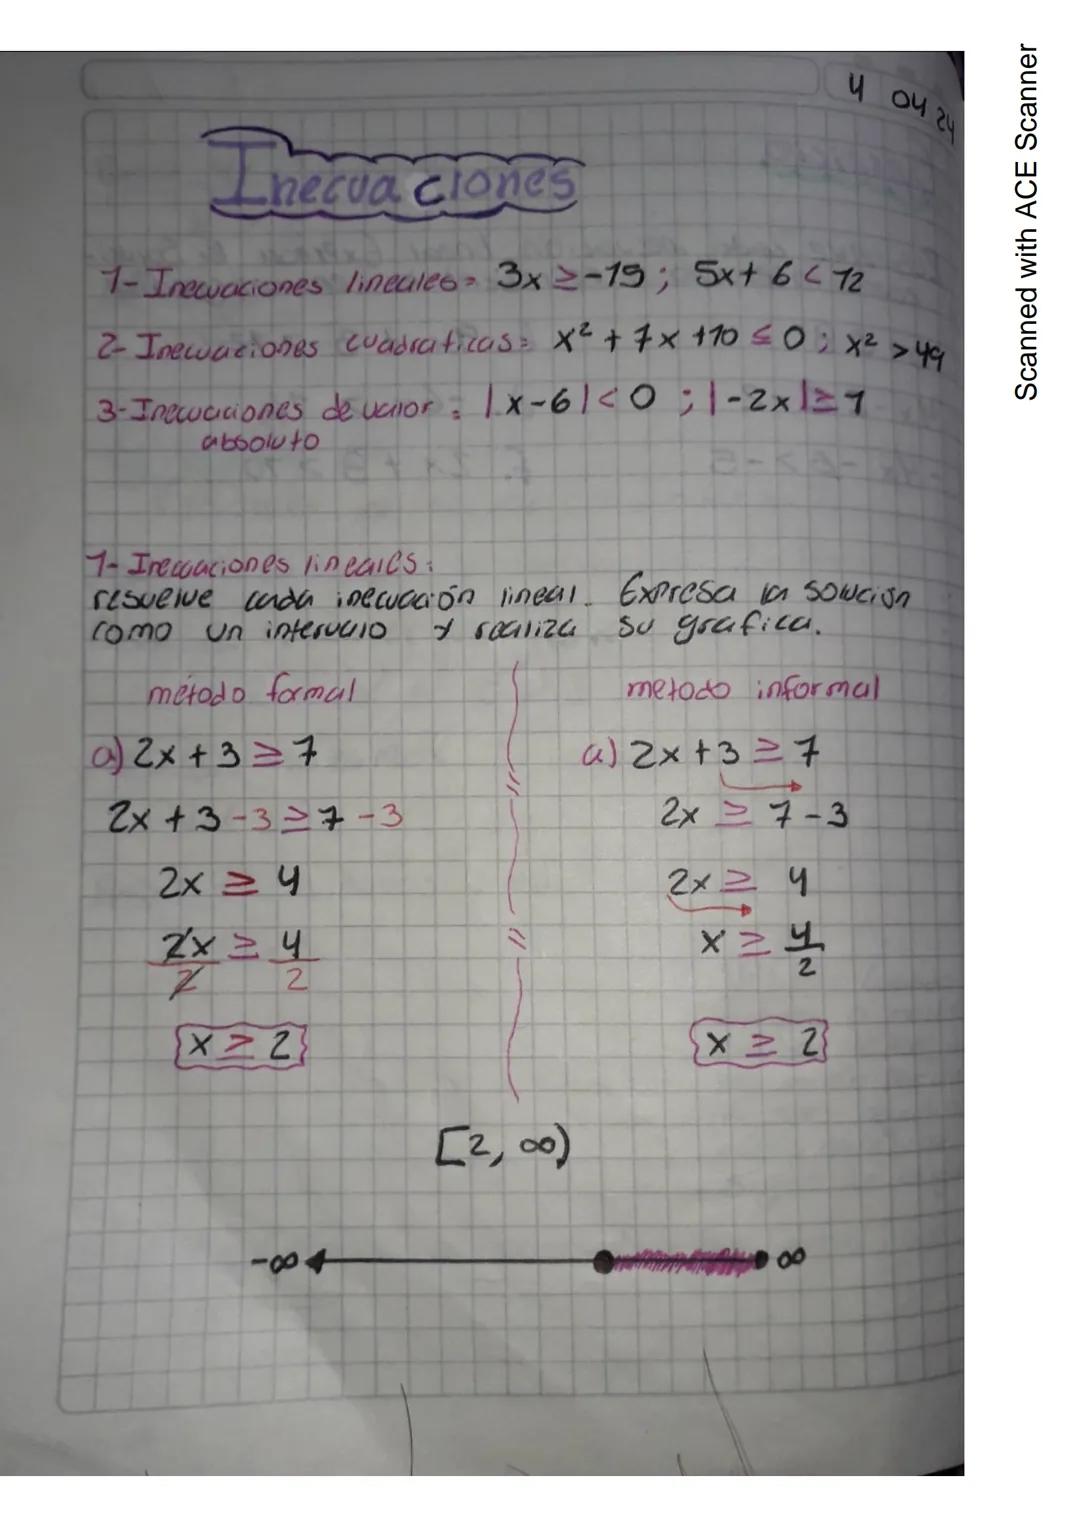 4 04 24
Inecuaciones
1- Inecuaciones lineales = 3x ≥ -15 ; 5x + 6 < 12
2- Inecuaciones cuadraticas = x² + 7x + 10 ≤ 0 ; x² > 49
3- Inecuaciones de valor = |x - 6| < 0 ; |-2x| ≥ 1
absoluto
1- Inecuaciones lineales:
resuelve cada inecuación lineal. Expresa la solución
como un intervalo y realiza su grafica.
método formal
a) 2x + 3 ≥ 7
2x + 3 - 3 ≥ 7 - 3
2x ≥ 4
2x/2 ≥ 4/2
x ≥ 2
metodo informal
a) 2x + 3 ≥ 7
2x ≥ 7 - 3
2x ≥ 4
x ≥ 4/2
x ≥ 2
[2, ∞)
-∞ ∞
Scanned with ACE Scanner